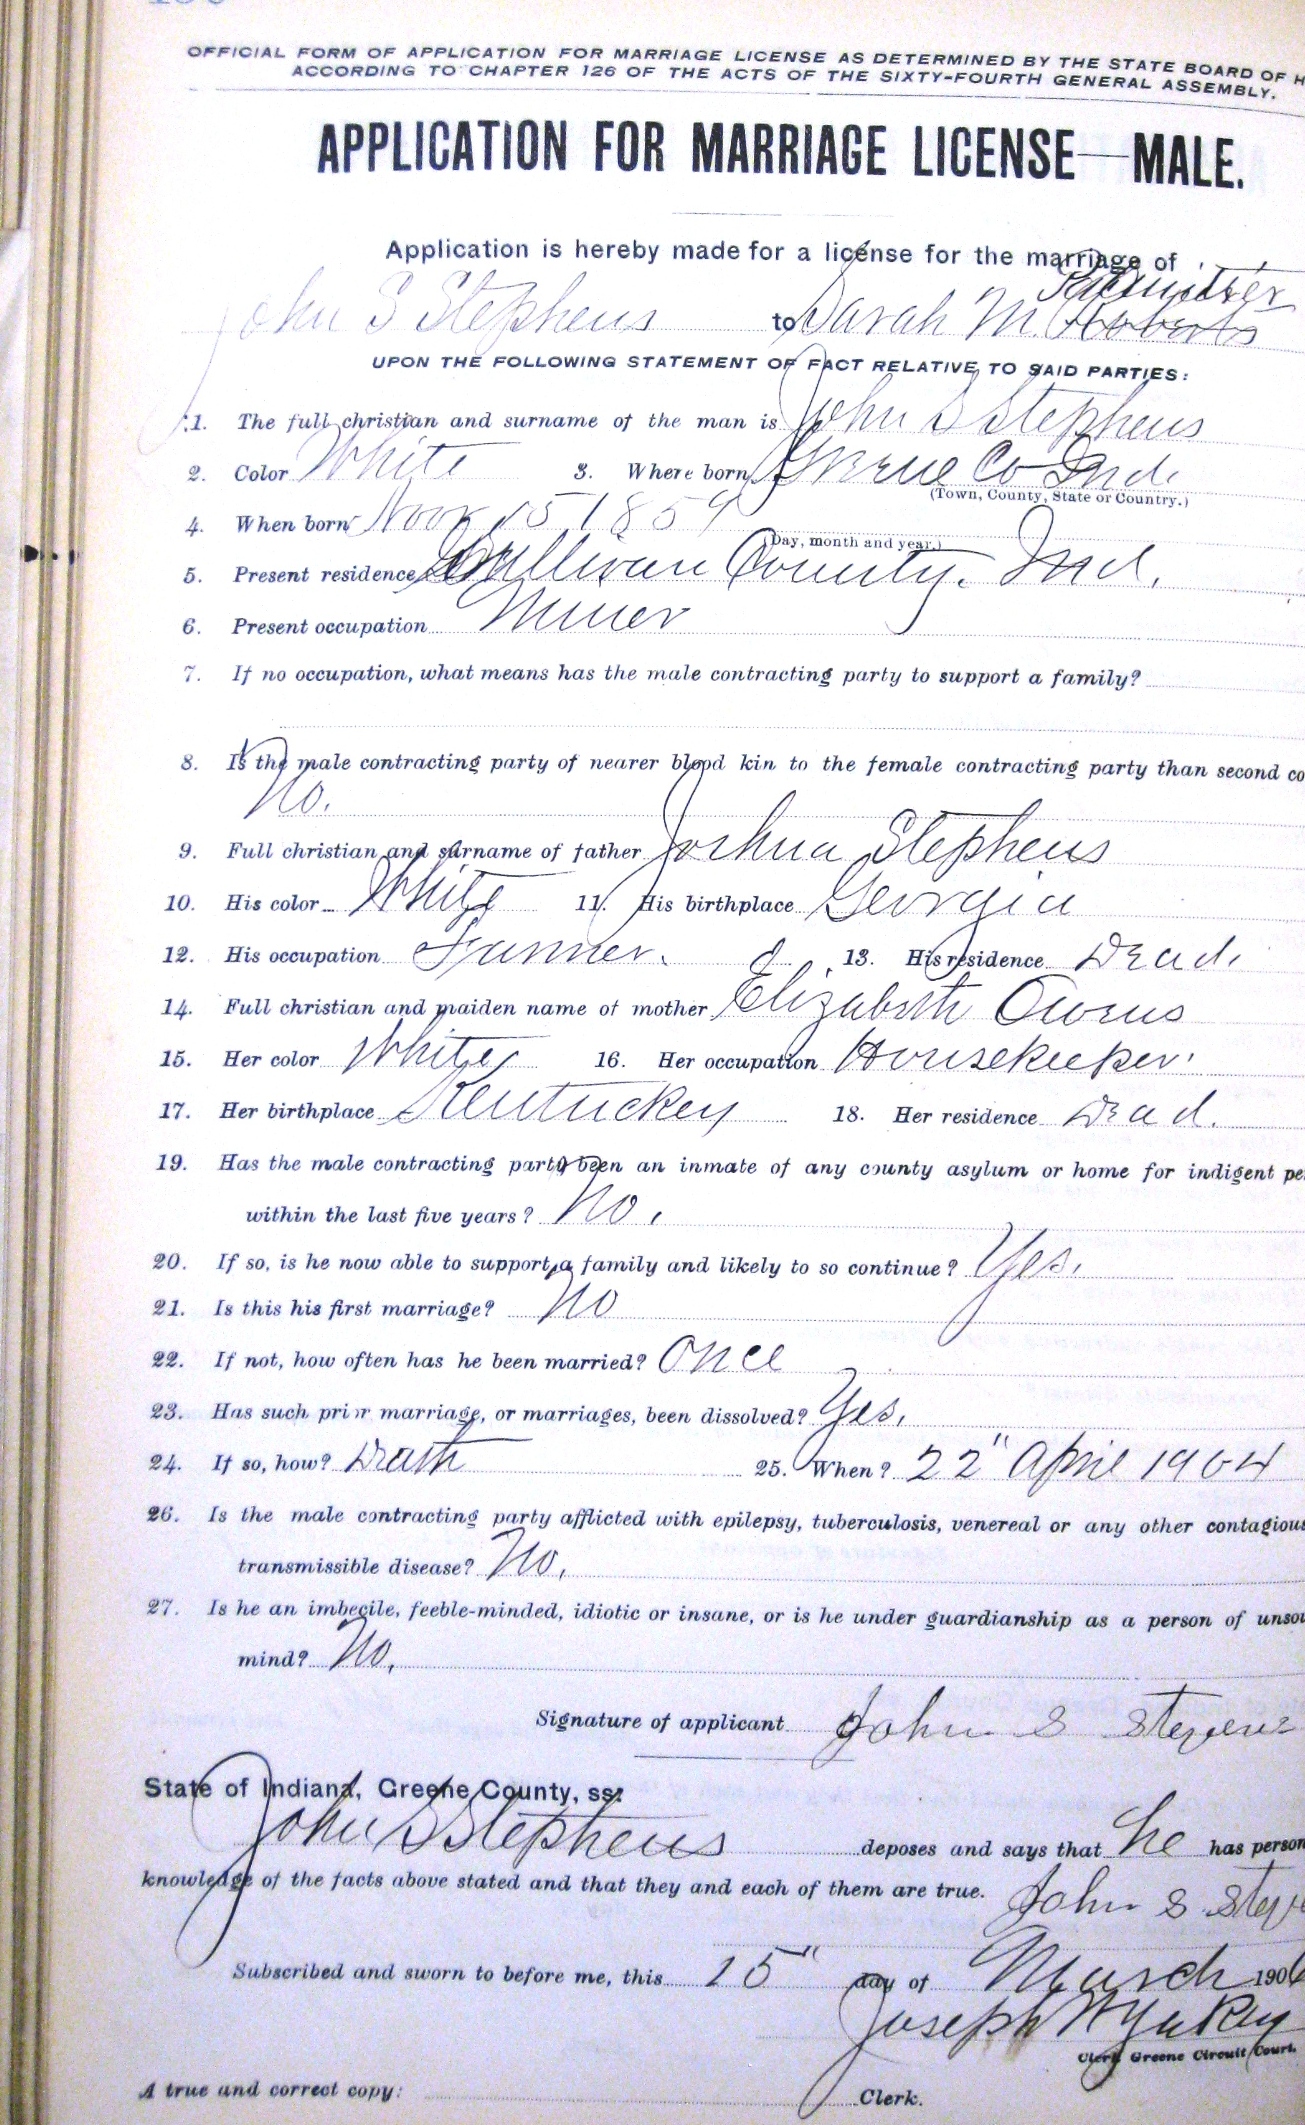 OFFICIAL FORM OF APPLICATION FOR MARRIAGE LICENSE AS DETERMINED BY THE STATE BOARD OF H
ACCORDING TO CHAPTER 126 OF THE ACTS OF THE SIXTY-FOURTH GENERAL ASSEMBLY.
APPLICATION FOR MARRIAGE LICENSE—MALE.
Application is hereby made for a license for the marriage of
John S Stephens to Sarah M. Roberts
UPON THE FOLLOWING STATEMENT OF FACT RELATIVE TO SAID PARTIES:
1. The full christian and surname of the man is John S Stephens
2. Color White 3. Where born Greene Co Ind.
(Town, County, State or Country.)
4. When born Nov 15 1859
(Day, month and year.)
5. Present residence Sullivan County. Ind.
6. Present occupation Miner
7. If no occupation, what means has the male contracting party to support a family?
8. Is the male contracting party of nearer blood kin to the female contracting party than second co
No.
9. Full christian and surname of father Joshua Stephens
10. His color White 11. His birthplace Georgia
12. His occupation Farmer. 13. His residence Dead.
14. Full christian and maiden name of mother Elizabeth Owens
15. Her color White 16. Her occupation Housekeeper.
17. Her birthplace Kentuckey 18. Her residence Dead.
19. Has the male contracting party been an inmate of any county asylum or home for indigent pe
within the last five years? No.
20. If so, is he now able to support a family and likely to so continue? Yes.
21. Is this his first marriage? No
22. If not, how often has he been married? Once
23. Has such prior marriage, or marriages, been dissolved? Yes.
24. If so, how? Death 25. When? 22" April 1904
26. Is the male contracting party afflicted with epilepsy, tuberculosis, venereal or any other contagious
transmissible disease? No.
27. Is he an imbecile, feeble-minded, idiotic or insane, or is he under guardianship as a person of unsou
mind? No.
Signature of applicant John S Stevens
State of Indiana, Greene County, ss:
John S Stephens deposes and says that he has person
knowledge of the facts above stated and that they and each of them are true. John S Steve
Subscribed and sworn to before me, this 15" day of March 1906
Joseph W Yakey
Clerk Greene Circuit Court.
A true and correct copy: Clerk.